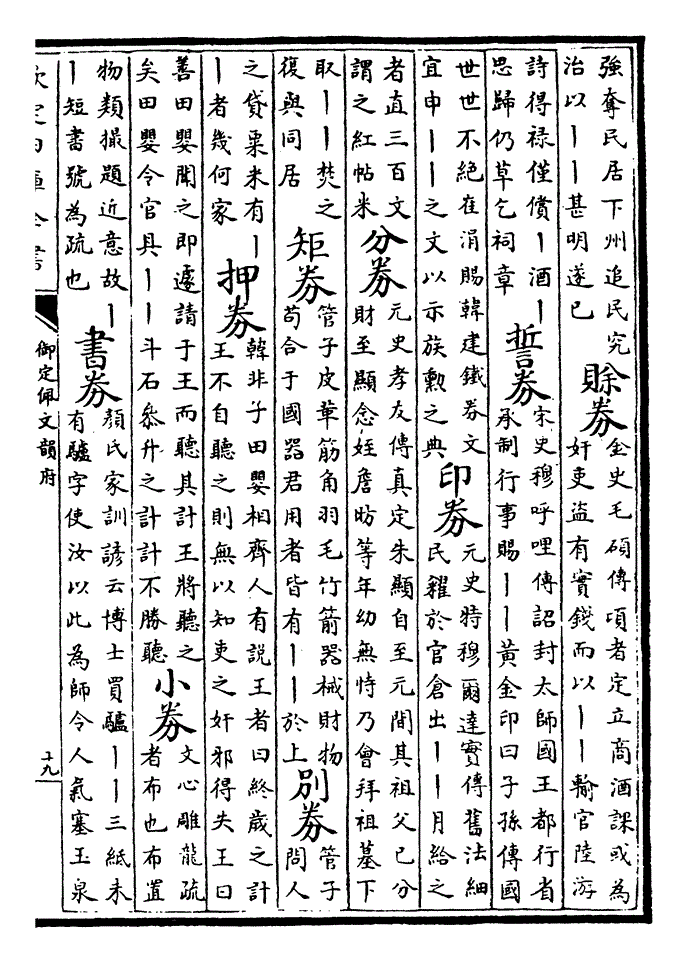 強奪民居下州追民究
治以｜｜甚明遂已
賖券
金史毛碩傳項者定立商酒課或為
奸吏盜有實錢而以｜｜輸官陸游
詩得禄僅償｜酒｜
思歸仍草乞祠章
誓券
宋史穆呼哩傳詔封太師國王都行省
承制行事賜｜｜黄金印曰子孫傳國
世世不絶在涓賜韓建鐵券文
宜申｜｜之文以示族勲之典
印券
元史特穆爾達實傳舊法細
民糴於官倉出｜｜月給之
者直三百文
謂之紅帖米
分券
元史孝友傳真定朱顯自至元間其祖父已分
財至顯念姪詹昉等年幼無恃乃會拜祖墓下
取｜｜焚之
復與同居
矩券
管子皮革筋角羽毛竹箭器械財物
苟合于國器君用者皆有｜｜於上
别券
管子
問人
之貸粟米有｜
｜者幾何家
押券
韓非子田嬰相齊人有説王者曰終歲之計
王不自聽之則無以知吏之奸邪得失王曰
善田嬰聞之即遽請于王而聽其計王將聽之
矣田嬰令官具｜｜斗石叅升之計計不勝聽
小券
文心雕龍疏
者布也布置
物類撮題近意故｜
｜短書號為疏也
書券
顔氏家訓諺云博士買驢｜｜三紙未
有驢字使汝以此為師令人氣塞玉泉
欽定四庫全書
御定佩文韻府
十九